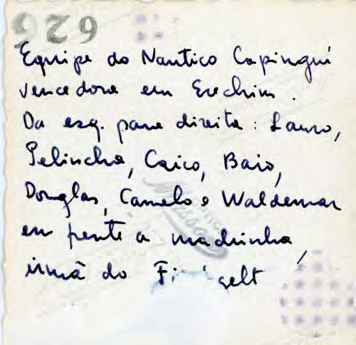 929
Equipe do Nautico Capinguí
vencedora em Erechim.
Da esq. para direita: Lauro,
Pelincha, Caico, Baio,
Douglas, Camelo e Waldemar
em frente a madrinha,
irmã do